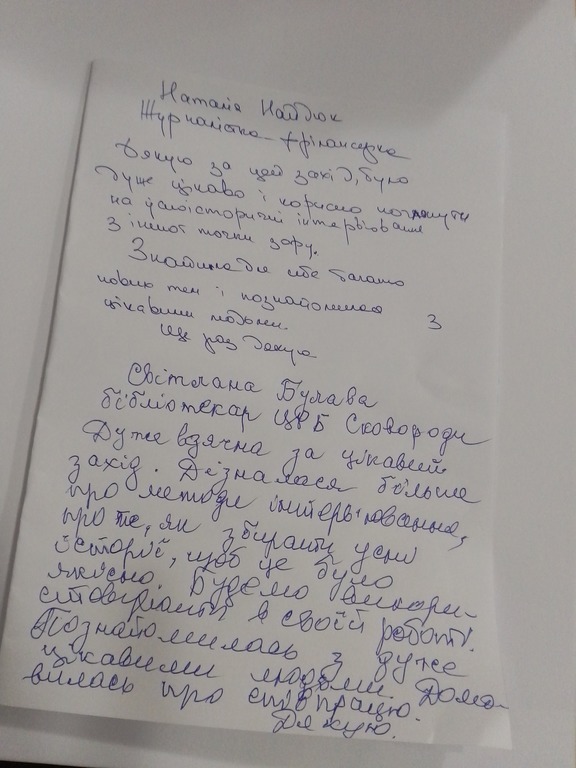 Наталія Найдюк
Журналістка-фрілансерка
Дякую за цей захід, було
дуже цікаво і корисно поглянути
на усноісторичні інтерв'ювання
з іншої точки зору.
Знайшла для себе багато
нових тем і познайомилася з
цікавими людьми.
Ще раз дякую
Світлана Булава
бібліотекар ЦРБ Сковороди
Дуже вдячна за цікавий
захід. Дізналася більше
про методи інтерв'ювання,
про те, як збирати усні
історії, щоб це було
якісно. Будемо викори-
стовувати в своїй роботі.
Познайомилась з дуже
цікавими людьми. Домо-
вилась про співпрацю.
Дякую.